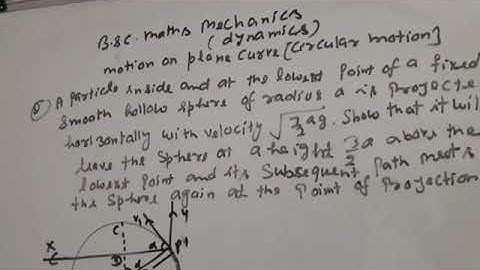 B.sc. maths mechanics
(dynamics)
motion on plane curve [circular motion]
5) A particle inside and at the lowest point of a fixed
smooth hollow sphere of radius a is projecte
horizontally with velocity √7/2 ag. Show that it wil
leave the sphere at a height 3/2 a above the
lowest point and its subsequent path meets
the sphere again at the point of projection
C
V1
Y
X
a
P1
D
d